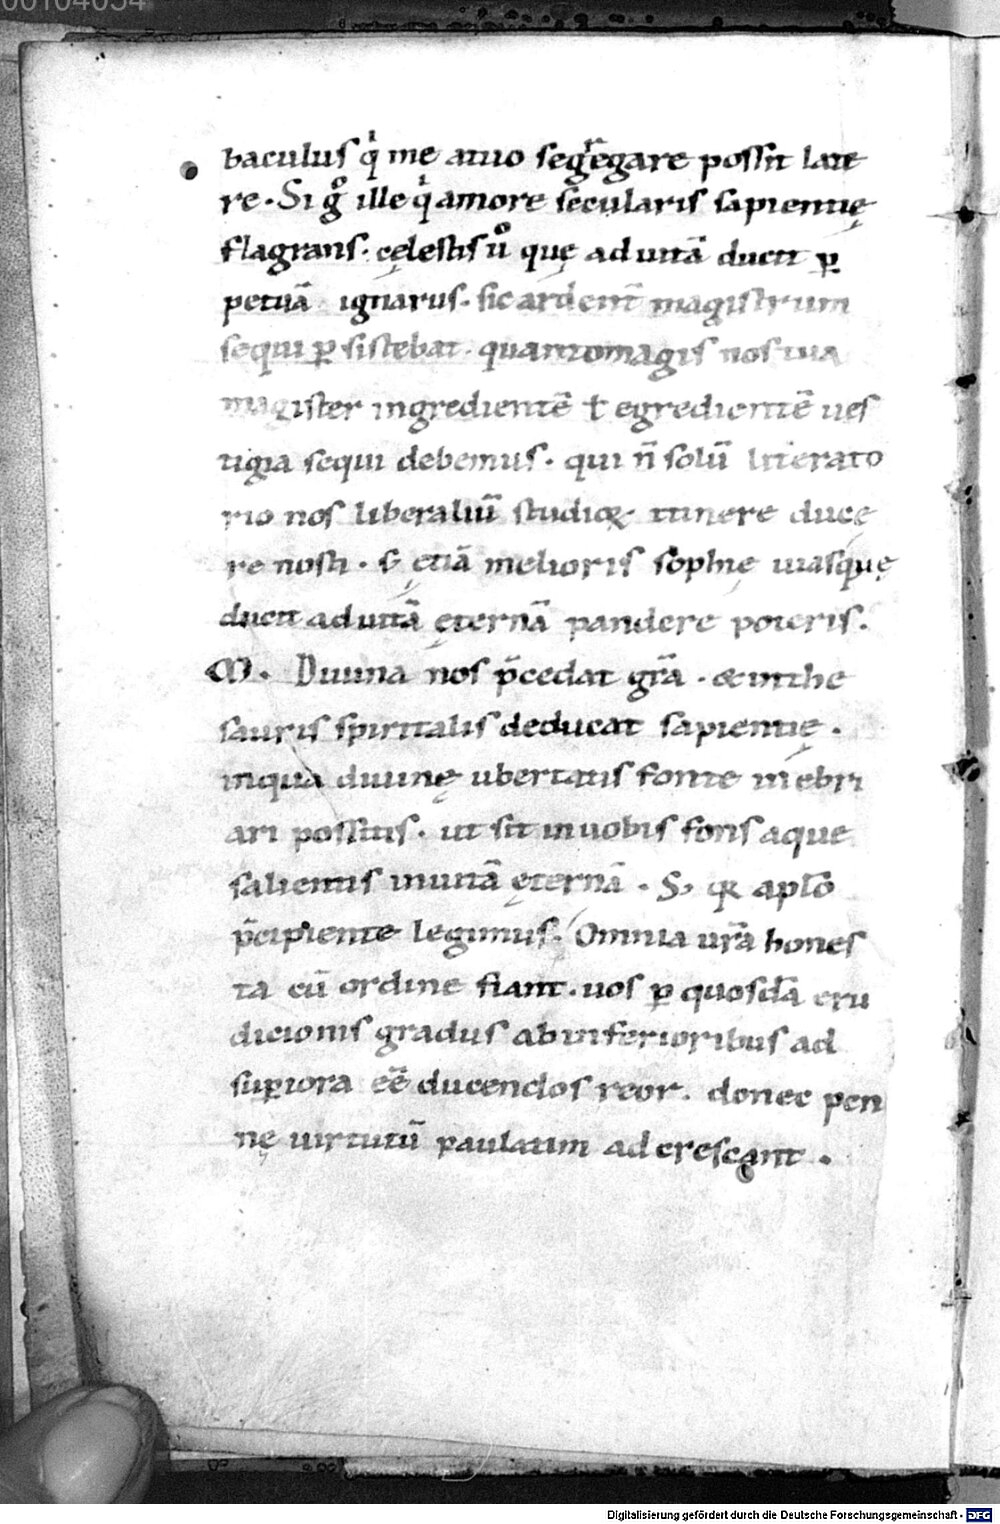 00104054
baculuſ qͥ me atuo ſegͤregare poſſit late
re. Si gͦ ille qͥ amore ſecularis ſapientię
flagranſ. cęleſtiſ uͦ quę ad uitā ducit ꝑ
petuā ignaruſ. ſic ardent̄ magiſtrum
ſequi ꝑ ſiſtebat. quantomagiſ noſ tua
magiſter ingredientē ⁊ egredientē ueſ
tigia ſequi debemuſ. qui n̄ ſolū literato
rio noſ liberaliū ſtudioꝝ itinere duce
re noſti. ſ; etiā melioriſ ſophię uiaſquę
ducit ad uitā ęternā pandere poteriſ.
M. Diuina noſ p̄cedat gr̄a. & inthe
ſauriſ ſpiritaliſ deducat ſapientię.
inqua diuinę ubertatiſ fonte inebri
ari poſſitiſ. ut ſit inuobiſ fonſ aque
ſalientiſ inuitā ęternā. S; qꝛ aplo᷑
p̄cipiente legimuſ. Omnia ur̄a honeſ
ta cū ordine fiant. uoſ ꝑ quoſdā eru
dicioniſ graduſ ab inferioribuſ ad
ſuꝑiora eē ducendoſ reor. donec pen
nę uirtutū paulatim ad creſcant.
Digitalisierung gefördert durch die Deutsche Forschungsgemeinschaft - DFG